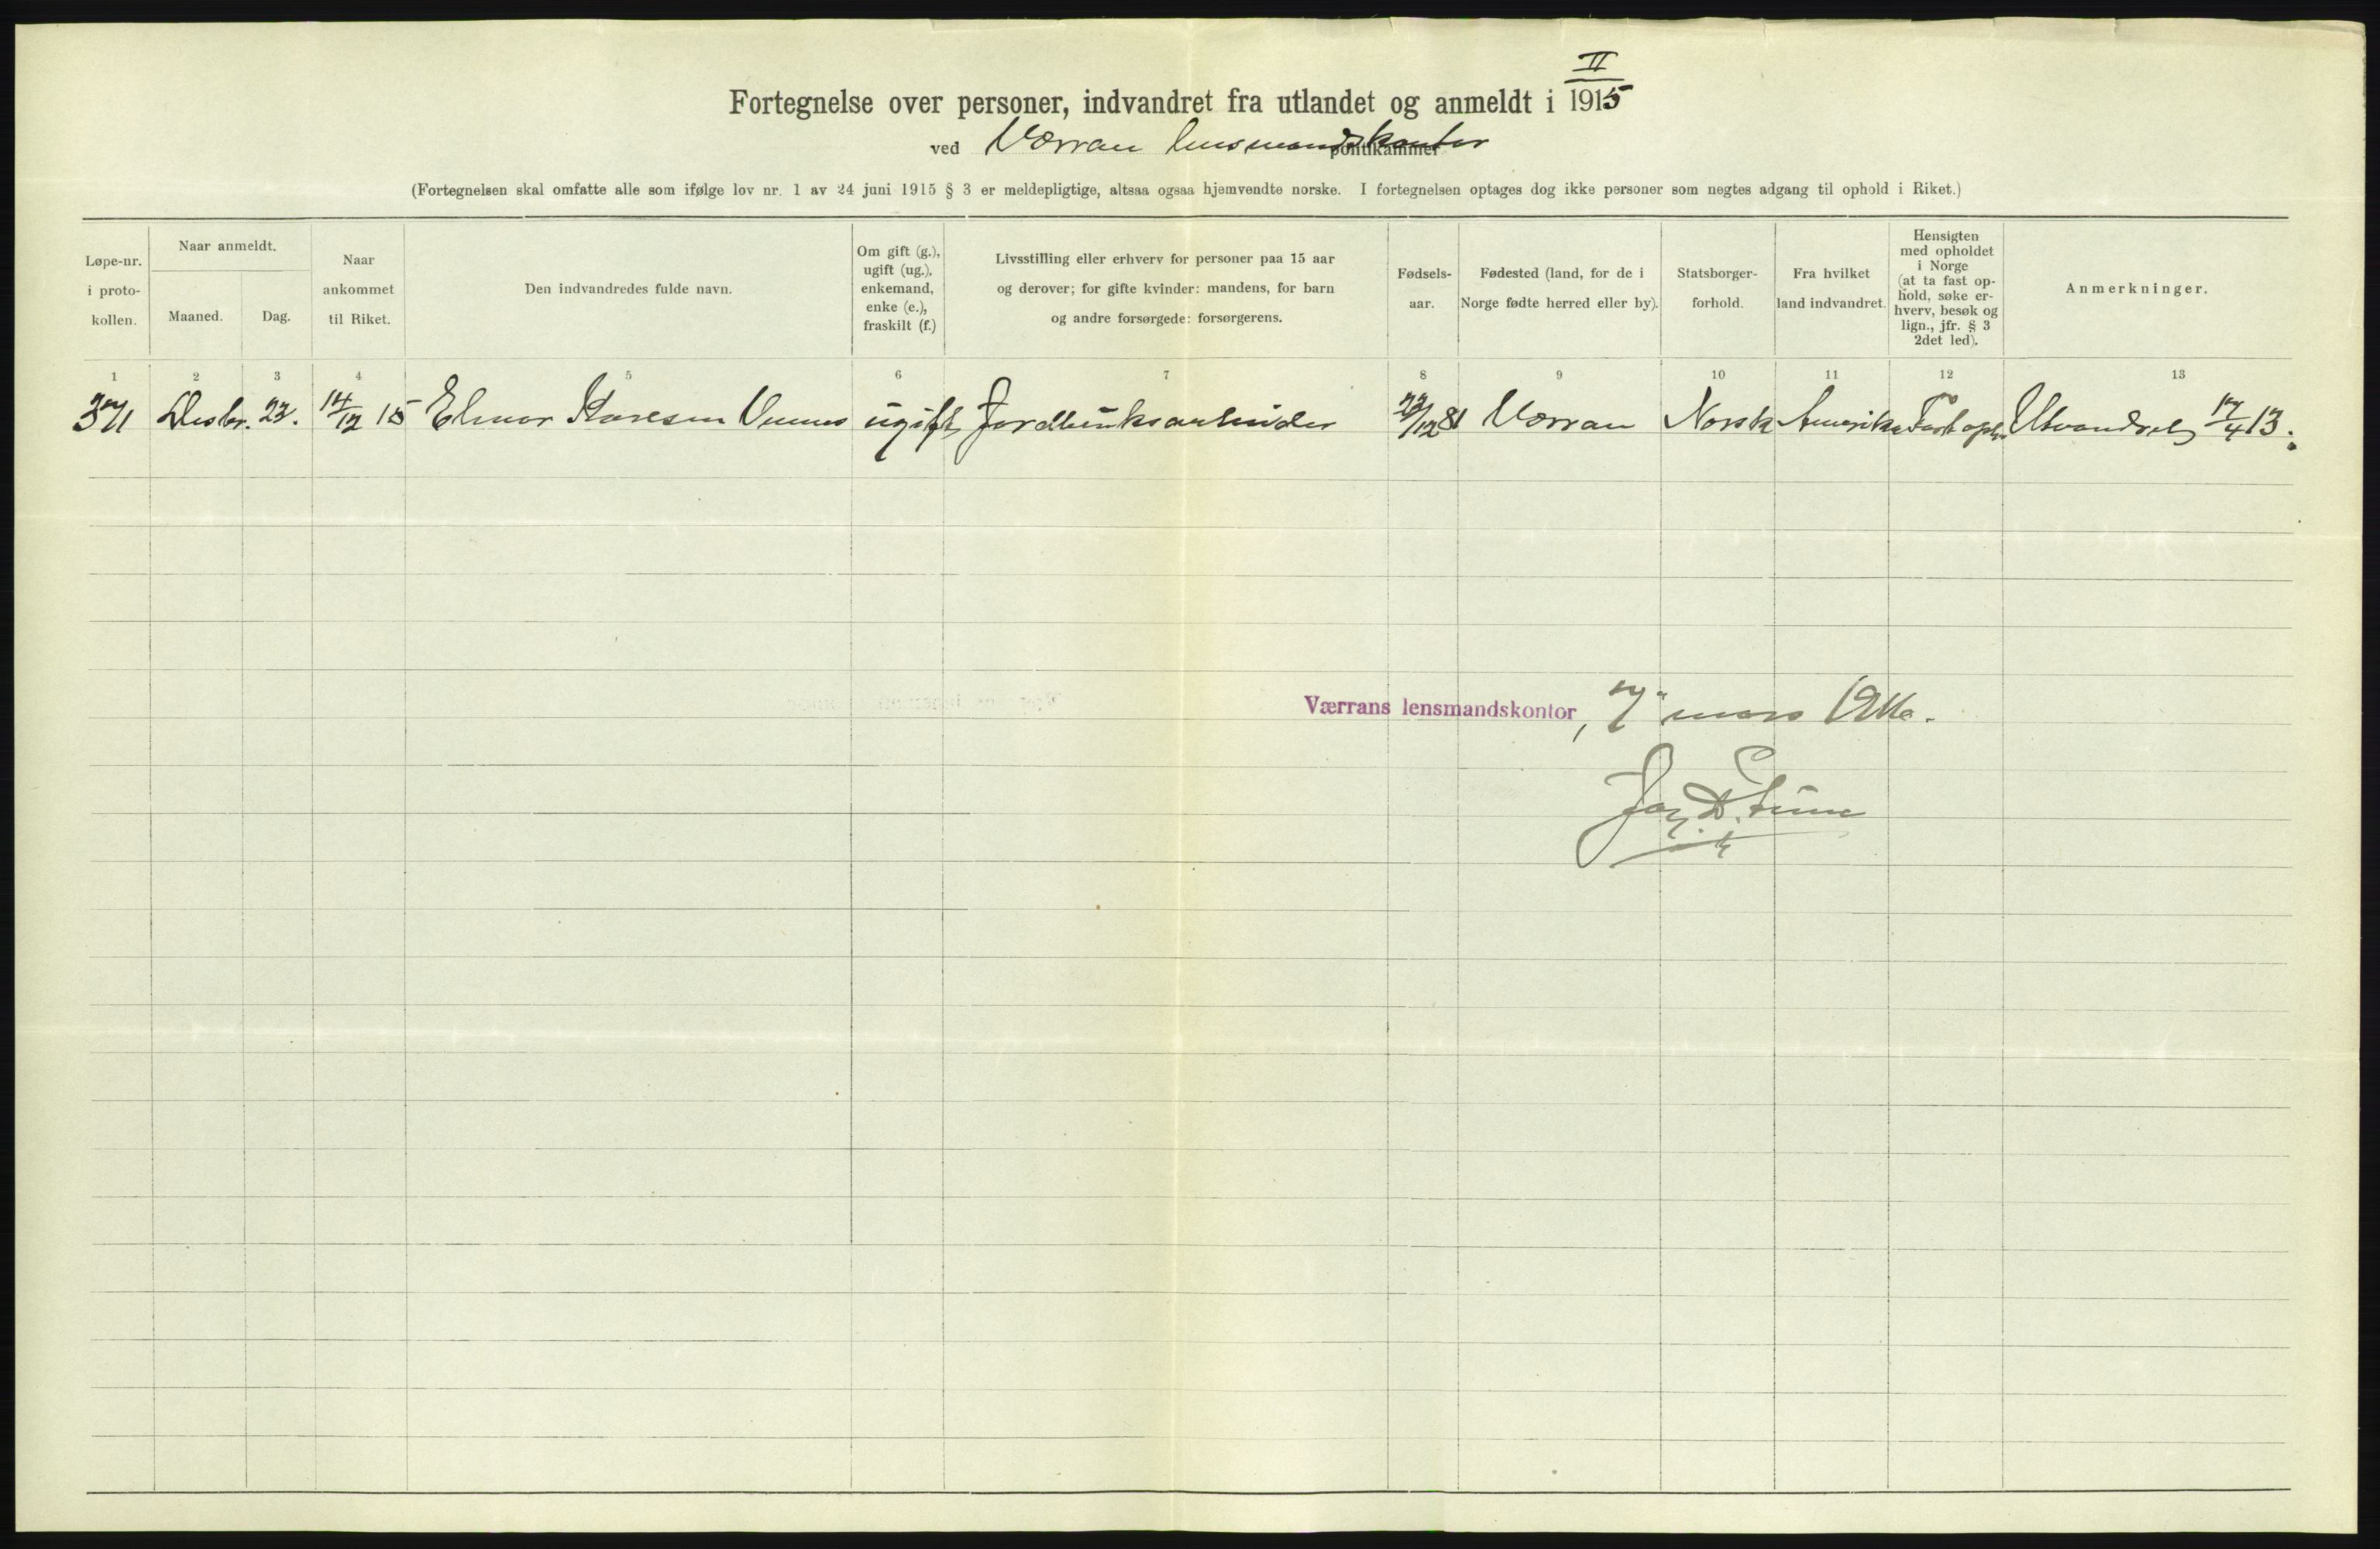 II
Fortegnelse over personer, indvandret fra utlandet og anmeldt i 1915
ved Værran lensmandskontor politikammer
(Fortegnelsen skal omfatte alle som ifølge lov nr. 1 av 24 juni 1915 § 3 er meldepligtige, altsaa ogsaa hjemvendte norske. I fortegnelsen optages dog ikke personer som negtes adgang til ophold i Riket.)
Løpe-nr.
i proto-
kollen.
Naar anmeldt.
Maaned.
Dag.
Naar
ankommet
til Riket.
Den indvandredes fulde navn.
Om gift (g.),
ugift (ug.),
enkemand,
enke (e.),
fraskilt (f.)
Livsstilling eller erhverv for personer paa 15 aar
og derover; for gifte kvinder: mandens, for barn
og andre forsørgede: forsørgerens.
Fødsels-
aar.
Fødested (land, for de i
Norge fødte herred eller by).
Statsborger-
forhold.
Fra hvilket
land indvandret.
Hensigten
med opholdet
i Norge
(at ta fast op-
hold, søke er-
hverv, besøk og
lign., jfr. § 3
2det led).
Anmerkninger.
1 2 3 4 5 6 7 8 9 10 11 12 13
Desbr. 22. 14/12 15 ugift Jordbruksarbeider 22/12 81 Værran Norsk Amerika Fast Utvandret 17/4 13.
Værrans lensmandskontor, 7 mars 1916.